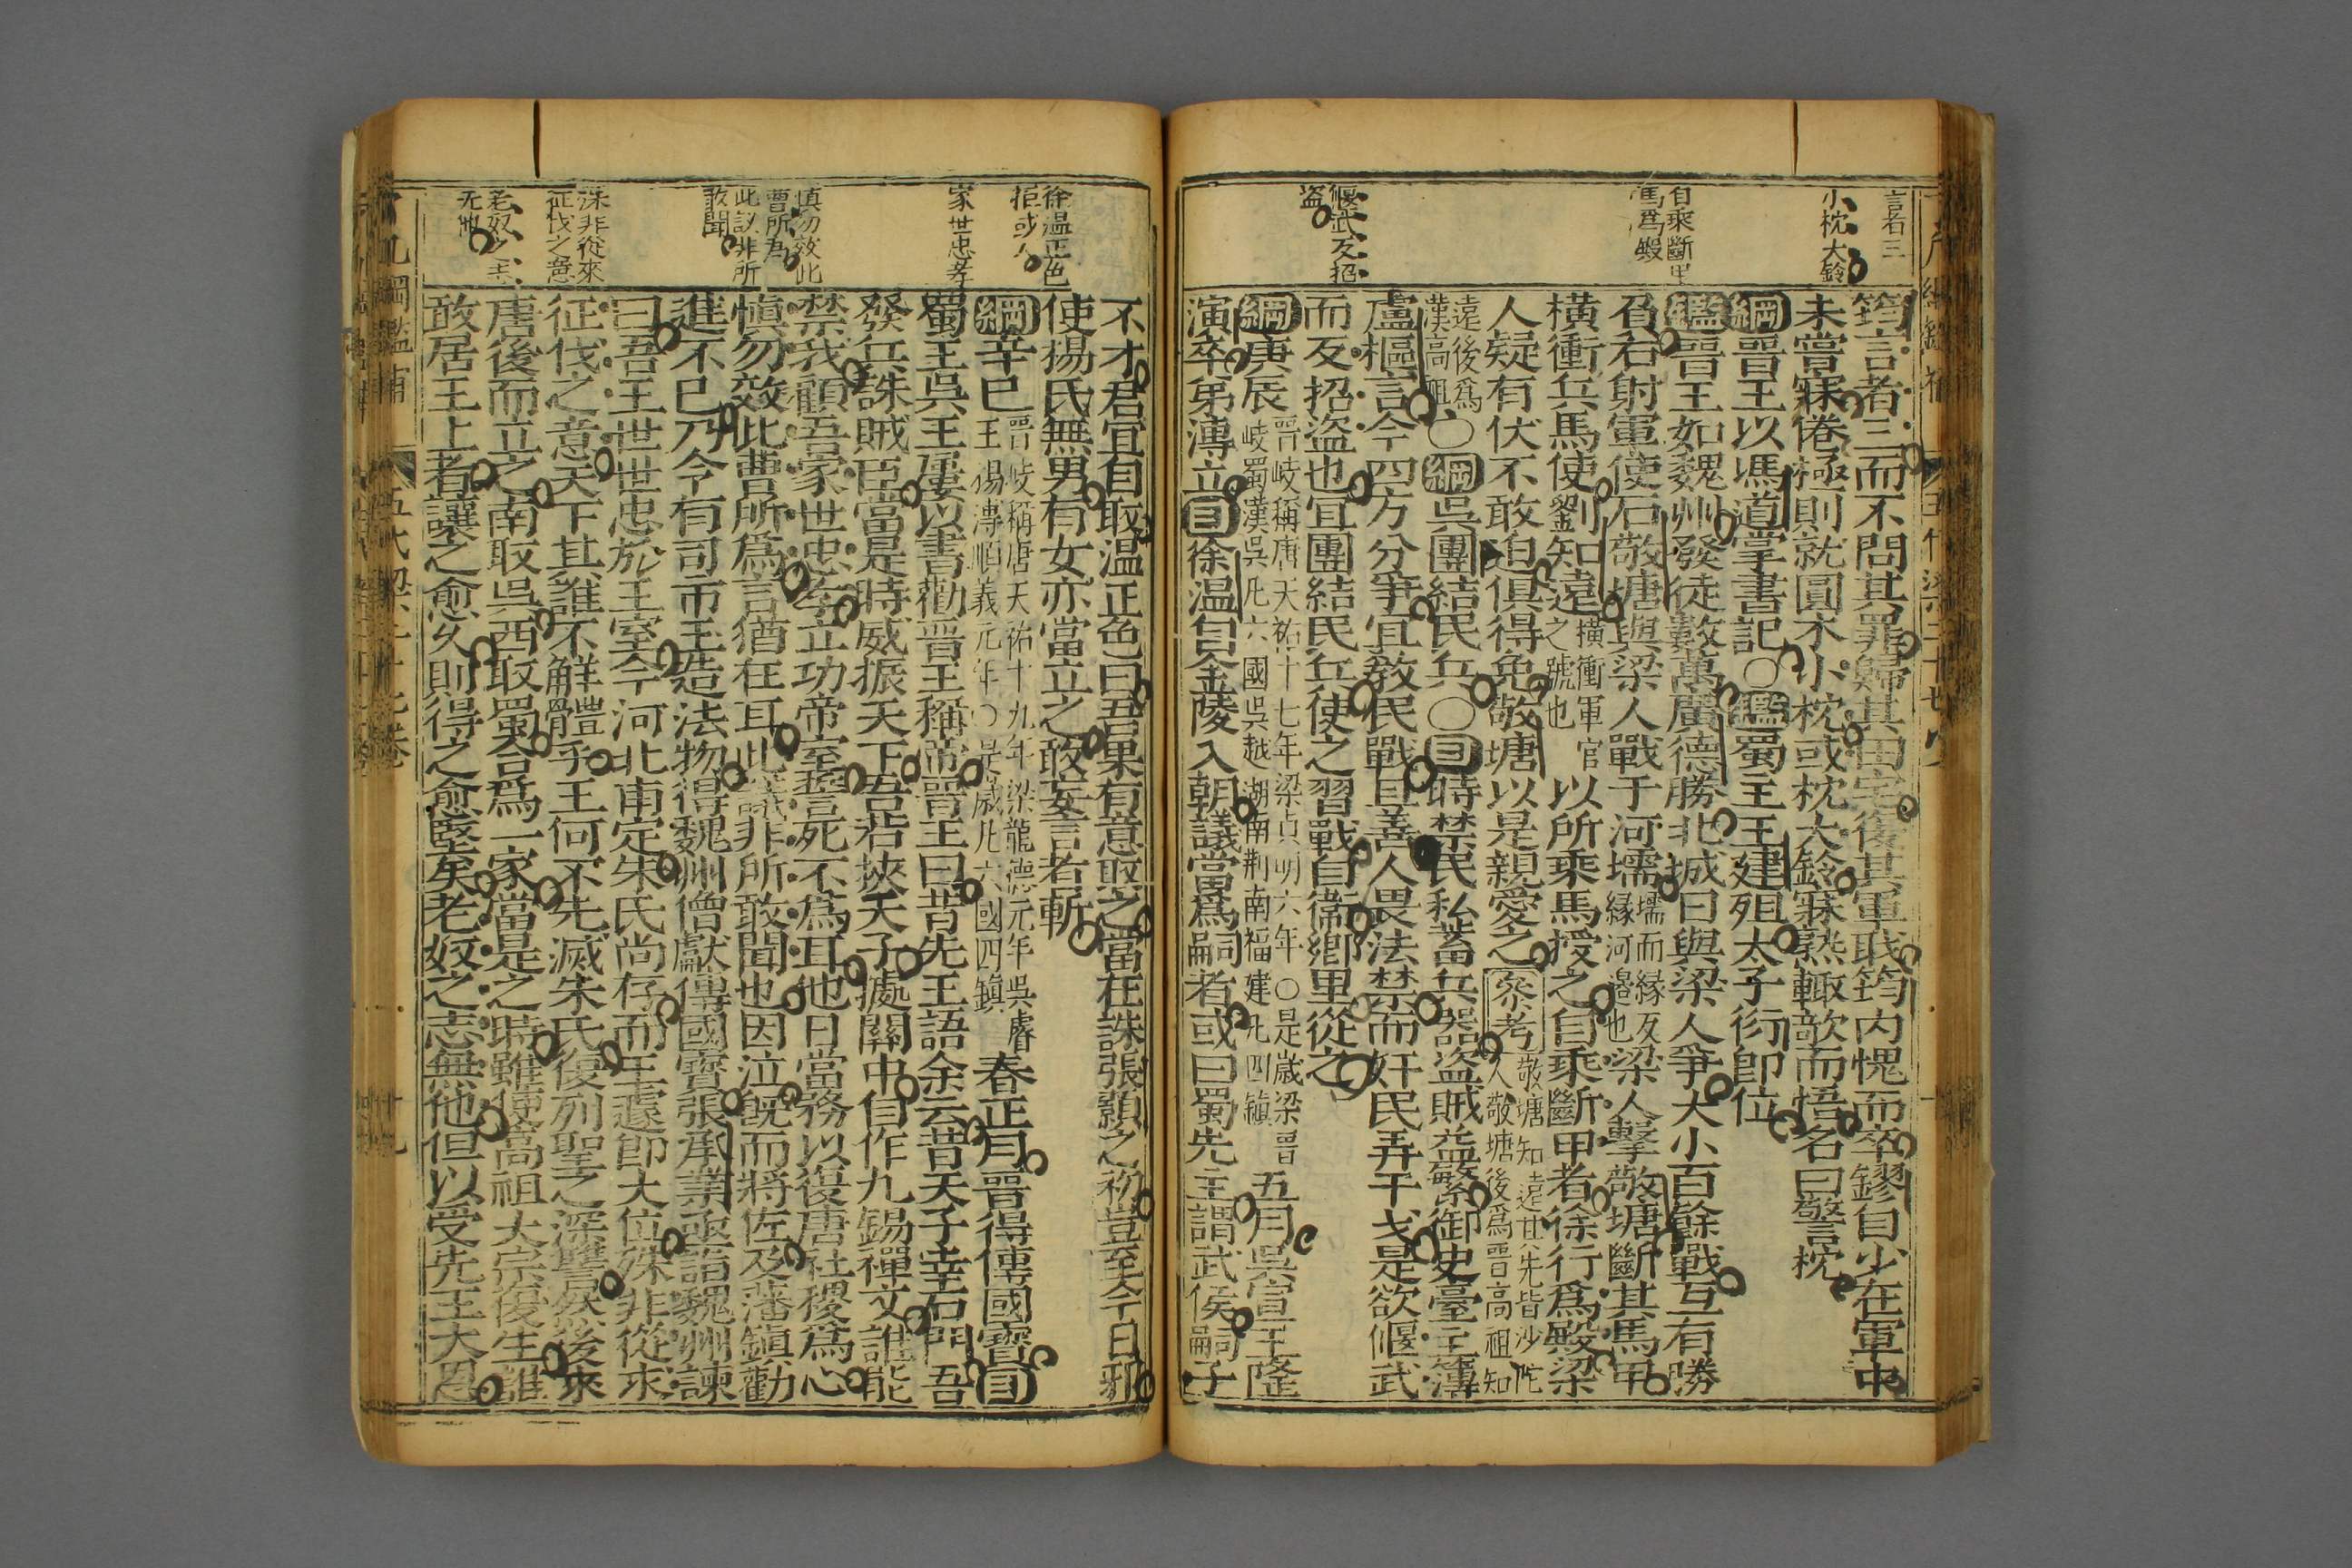 言者三
小枕大鈴
自乘斷甲
馬爲殿
偃武反招
盜
筠言者三而不問其罪歸其田宅復其軍職筠內愧而卒鏐自少在軍中
未嘗寐倦極則就圓木小枕或枕大鈴寐熟輙欹而悟名曰警枕
綱晉王以馮道掌書記○鑑蜀主王建殂太子衍卽位
鑑晉王如魏州發徒數萬廣德勝北城日與梁人爭大小百餘戰互有勝
負右射軍使石敬塘與梁人戰于河壖壖而緣反
緣河邊也梁人擊敬塘斷其馬甲
橫衝兵馬使劉知遠橫衝軍官
之號也以所乘馬授之自乘斷甲者徐行爲殿梁
人疑有伏不敢追俱得免敬塘以是親愛之叅考敬塘知遠其先皆沙陀
人敬塘後爲晉高祖知
遠後爲
漢高祖○綱吳團結民兵○目時禁民私畜兵器盜賊益繁御史臺主簿
盧樞言今四方分爭宜教民戰且善人畏法禁而奸民弄干戈是欲偃武
而反招盜也宜團結民兵使之習戰自衞鄉里從之
綱庚辰晉岐稱唐天祐十七年梁貞明六年○是歲梁晉
岐蜀漢吳凡六國吳越湖南荆南福建凡四鎭五月吳宣王隆
演卒弟溥立目徐溫自金陵入朝議當爲嗣者或曰蜀先主謂武侯嗣子
徐溫正色
拒或人
家世忠孝
愼勿效此
曹所爲
此議非所
敢聞
殊非從來
征伐之意
老奴之志
无他
不才君宜自取溫正色曰吾果有意取之當在誅張顥之初豈至今日邪
使楊氏無男有女亦當立之敢妄言者斬
綱辛巳晉岐稱唐天祐十九年梁龍德元年吳睿
王楊溥順義元年○是歲凡六國四鎭春正月晉得傳國寶目
蜀主吳王屢以書勸晉王稱帝晉王曰昔先王語余云昔天子幸石門吾
發兵誅賊臣當是時威振天下吾若挾天子據關中自作九錫禪文誰能
禁我顧吾家世忠孝立功帝室誓死不爲耳他日當務以復唐社稷爲心
愼勿效此曹所爲言猶在耳此議非所敢聞也因泣旣而將佐及藩鎭勸
進不已乃令有司市玉造法物得魏州僧獻傳國寶張承業亟詣魏州諫
曰吾王世世忠於王室今河北甫定朱氏尚存而王遽卽大位殊非從來
征伐之意天下其誰不觧體乎王何不先滅朱氏復列聖之深讐然後求
唐後而立之南取吳西取蜀合爲一家當是之時雖使高祖大宗復生誰
敢居王上者讓之愈久則得之愈堅矣老奴之志無他但以受先王大恩